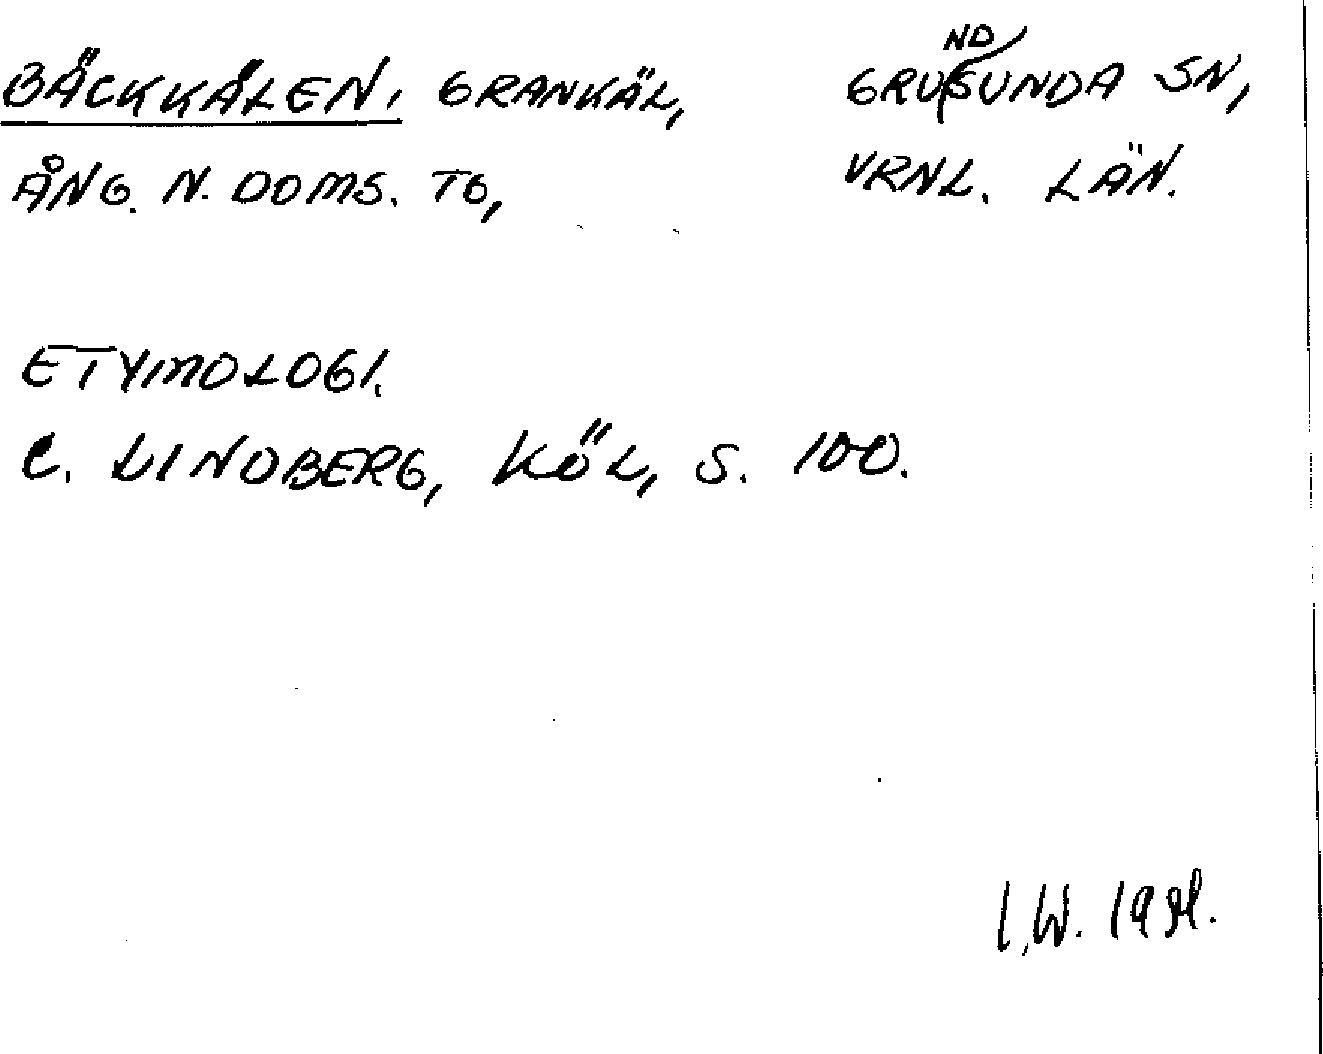 BÄCKKÄLEN, GRANKÄL, GRUNDSUNDA SN,
ÅNG. N. DOMS. TG, VRNL. LÄN.
ETYMOLOGI.
C. LINDBERG, KÖL, S. 100.
I.W.